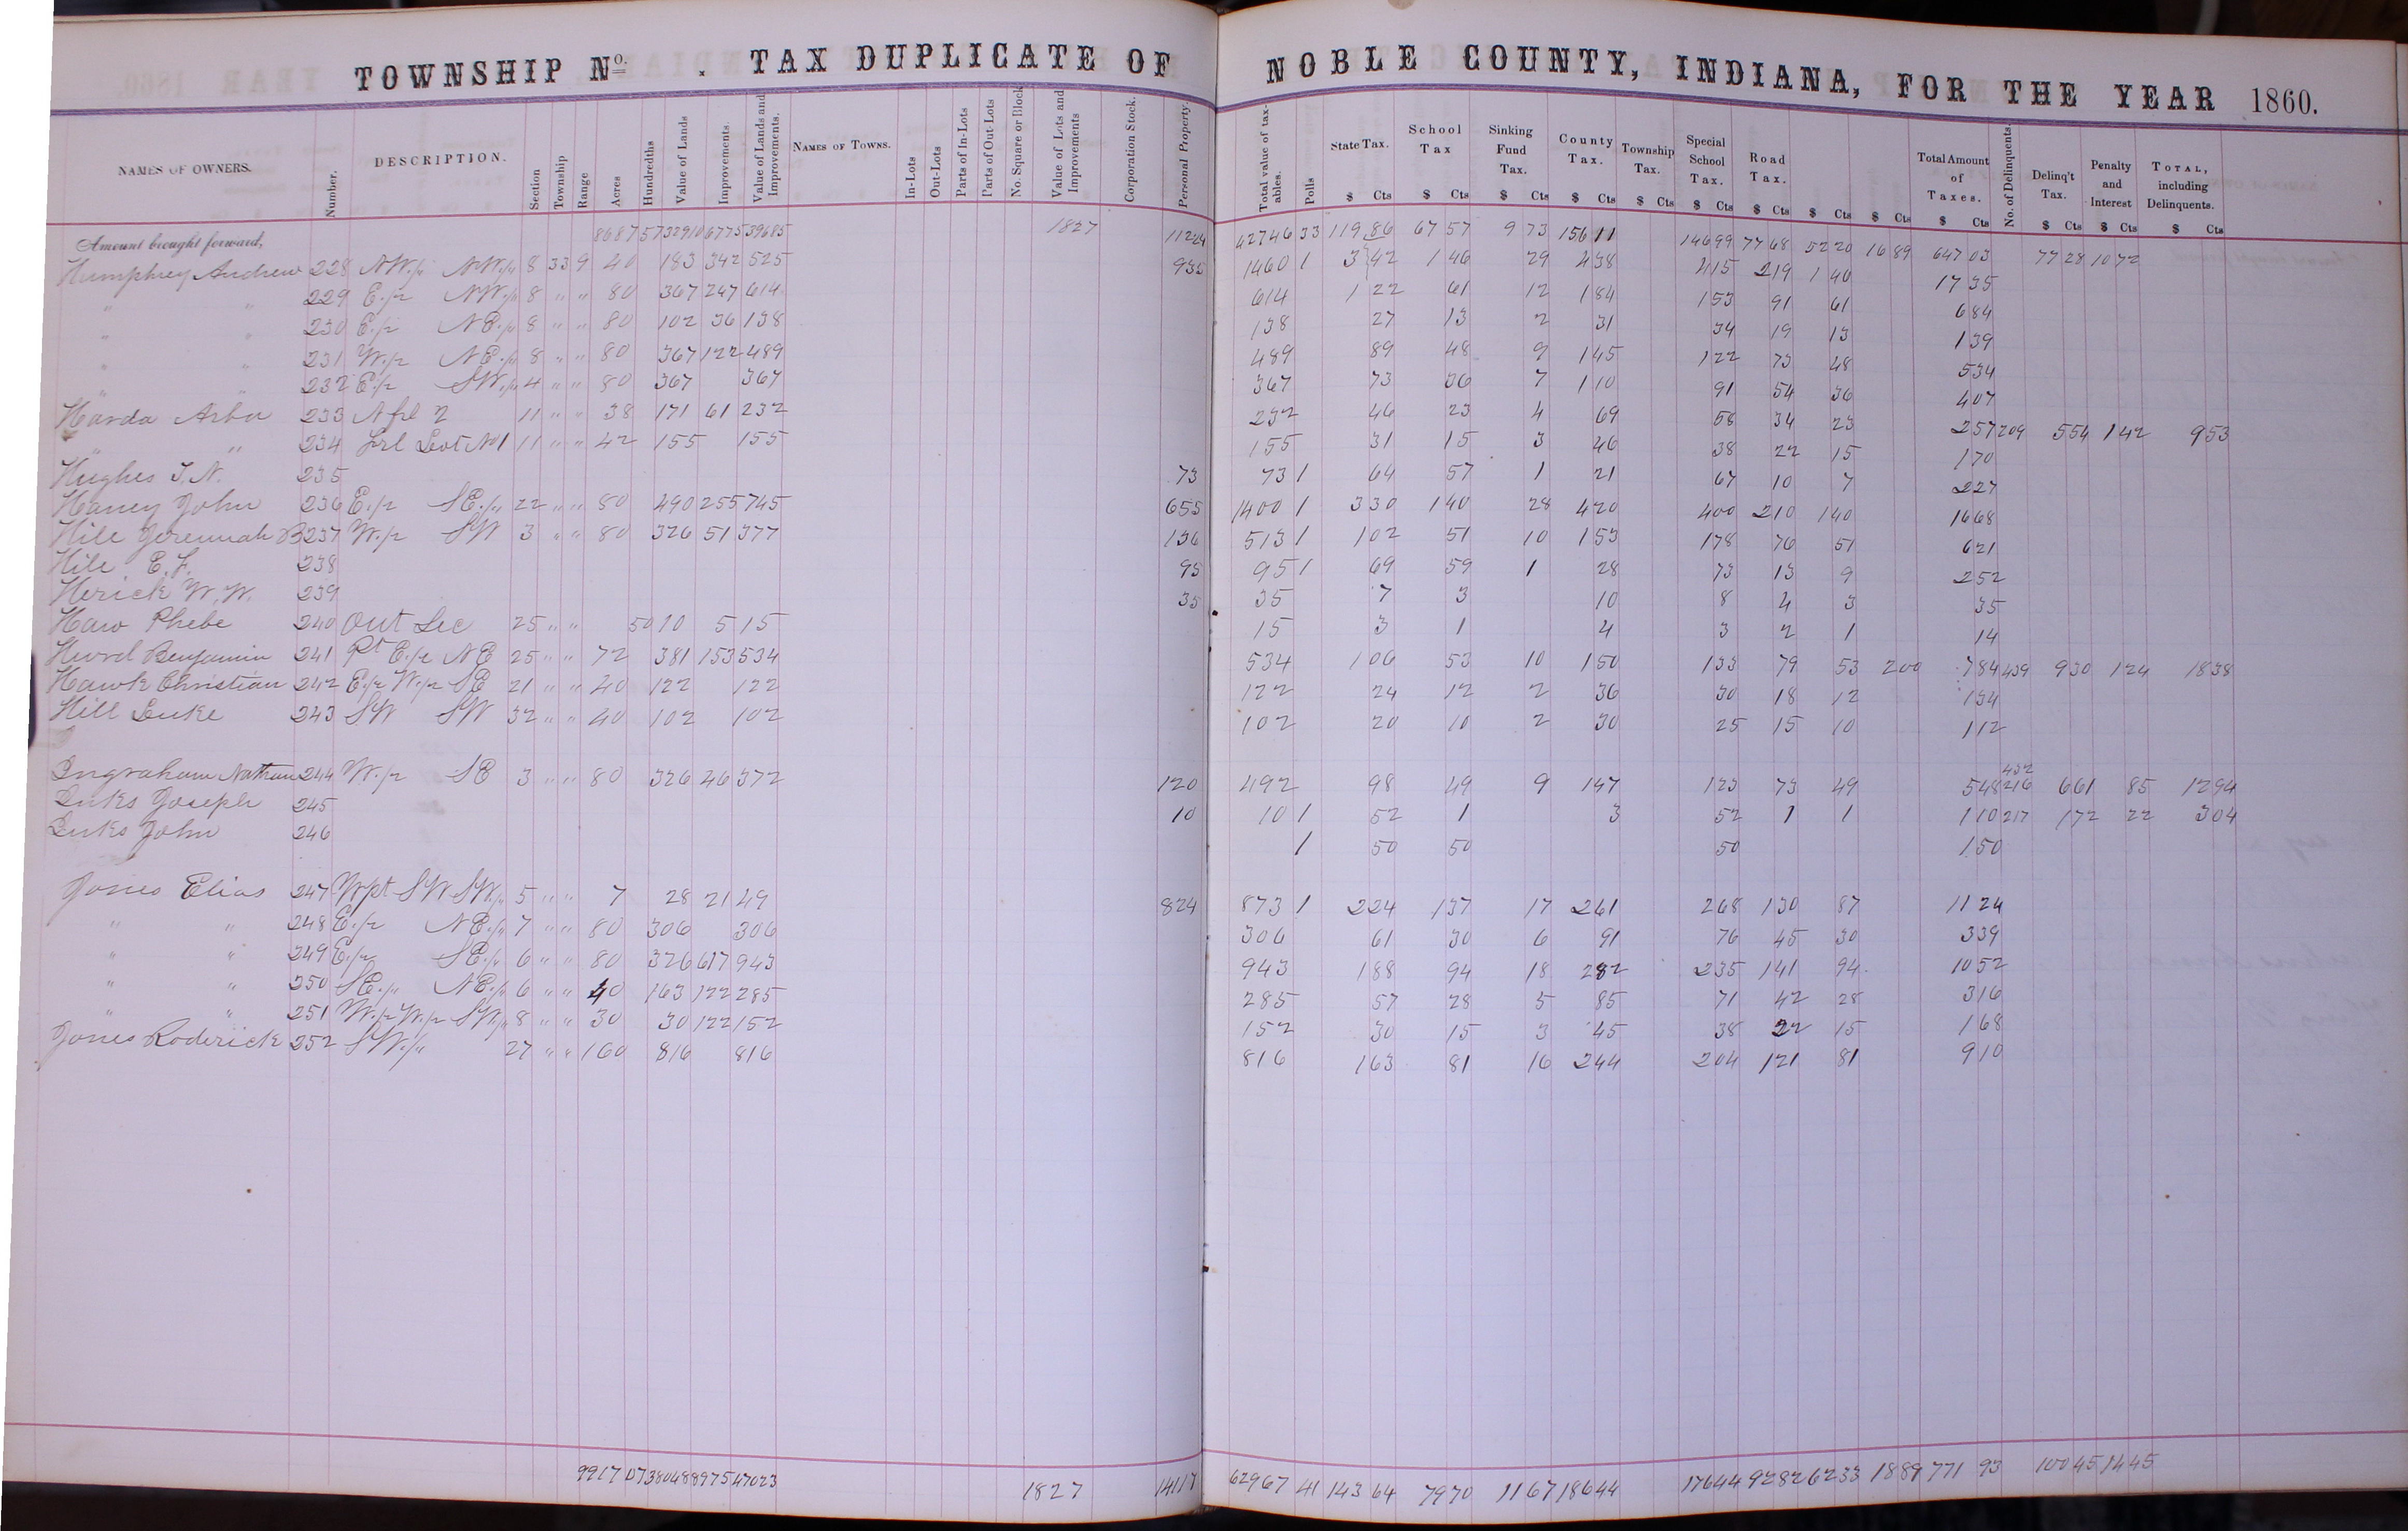 TOWNSHIP No. . TAX DUPLICATE OF NOBLE COUNTY, INDIANA, FOR THE YEAR 1860.
NAMES OF OWNERS. Number. DESCRIPTION. Section Township Range Acres Hundredths Value of Lands Improvements. Value of Lands and Improvements. NAMES OF TOWNS. In-Lots Out-Lots Parts of In-Lots Parts of Out-Lots No. Square or Block Value of Lots and Improvements Corporation Stock. Personal Property. Total value of taxables. Polls State Tax. School Tax Sinking Fund Tax. County Tax. Township Tax. Special School Tax. Road Tax. Total Amount of Taxes. No. of Delinquents. Delinq't Tax. Penalty and Interest TOTAL, including Delinquents.
$ Cts $ Cts $ Cts $ Cts $ Cts $ Cts $ Cts $ Cts $ Cts $ Cts $ Cts $ Cts $ Cts
Amount brought forward, 8687 57 32910 6775 39685 1827 11224 42746 33 119 86 67 57 9 73 156 11 146 99 77 68 52 20 16 89 647 03 77 28 10 72
Humphrey Andrew 228 NW.¼ NW.¼ 8 33 9 40 183 342 525 935 1460 1 3 42 1 46 29 4 38 4 15 2 19 1 40 17 35
" " 229 E.½ NW.¼ 8 " " 80 367 247 614 614 1 22 61 12 1 84 1 53 91 61 6 84
" " 230 E.½ NE.¼ 8 " " 80 102 36 138 138 27 13 2 31 34 19 13 1 39
" " 231 W.½ NE.¼ 8 " " 80 367 122 489 489 89 48 9 1 45 1 22 73 48 5 34
" " 232 E.½ SW.¼ 4 " " 80 367 367 367 73 36 7 1 10 91 54 36 4 07
Harda Arba 233 N frl 2 11 " " 38 171 61 232 232 46 23 4 69 58 34 23 2 57 209 5 54 1 42 9 53
" " 234 frl Lot No 1 11 " " 42 155 155 155 31 15 3 46 38 22 15 1 70
Hughes T. N. 235 73 73 1 64 57 1 21 67 10 7 2 27
Haney John 236 E.½ SE.¼ 22 " " 80 490 255 745 655 1400 1 3 30 1 40 28 4 20 4 00 2 10 1 40 16 68
Hile Jeremiah B 237 W.½ SW 3 " " 80 326 51 377 136 513 1 1 02 51 10 1 53 1 78 76 51 6 21
Hile E. F. 238 95 95 1 69 59 1 28 73 13 9 2 52
Herick W. W. 239 35 35 7 3 10 8 4 3 35
Haw Phebe 240 Out Sec 25 " " 50 10 5 15 15 3 1 4 3 2 1 14
Hurd Benjamin 241 Pt E.½ NE 25 " " 72 381 153 534 534 1 06 53 10 1 50 1 33 79 53 2 00 7 84 439 9 30 1 24 18 38
Hawk Christian 242 E.½ W.½ SE 21 " " 40 122 122 122 24 12 2 36 30 18 12 1 34
Hill Luke 243 SW SW 32 " " 40 102 102 102 20 10 2 30 25 15 10 1 12
Ingraham Nathan 244 W.½ SE 3 " " 80 326 46 372 120 492 98 49 9 1 47 1 23 73 49 5 48 432 216 6 61 85 12 94
Inks Joseph 245 10 10 1 52 1 3 52 1 1 1 10 217 1 72 22 3 04
Inks John 246 1 50 50 50 1 50
Jones Elias 247 Wpt SW SW.¼ 5 " " 7 28 21 49 824 873 1 2 24 1 37 17 2 61 2 68 1 30 87 11 24
" " 248 E.½ NE.¼ 7 " " 80 306 306 306 61 30 6 91 76 45 30 3 39
" " 249 E.½ SE.¼ 6 " " 80 326 617 943 943 1 88 94 18 2 82 2 35 1 41 94 10 52
" " 250 SE.¼ NE.¼ 6 " " 40 163 122 285 285 57 28 5 85 71 42 28 3 16
" " 251 W.½ W.½ SW.¼ 8 " " 30 30 122 152 152 30 15 3 45 38 22 15 1 68
Jones Roderick 252 SW.¼ 27 " " 160 816 816 816 1 63 81 16 2 44 2 04 1 21 81 9 10
9917 07 38048 8975 47023 1827 14117 62967 41 143 64 79 70 11 67 186 44 176 44 92 82 62 33 18 89 771 93 100 45 14 45